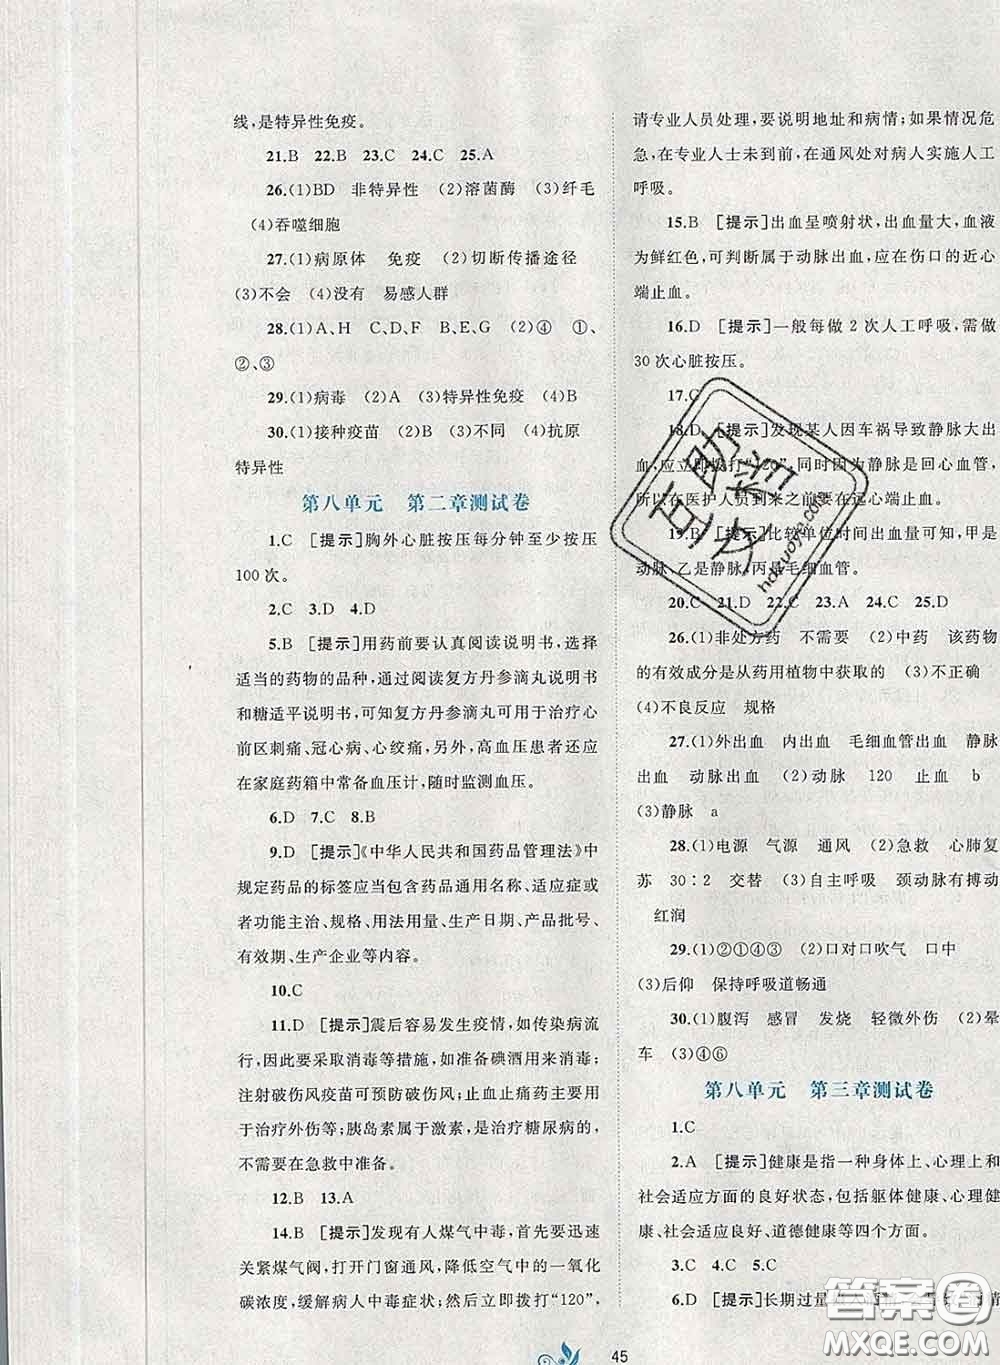 线,是特异性免疫。
21.B 22.B 23.C 24.C 25.A
26.(1)BD 非特异性 (2)溶菌酶 (3)纤毛
(4)吞噬细胞
27.(1)病原体 免疫 (2)切断传播途径
(3)不会 (4)没有 易感人群
28.(1)A、H C、D、F B、E、G (2)④ ①、
②、③
29.(1)病毒 (2)A (3)特异性免疫 (4)B
30.(1)接种疫苗 (2)B (3)不同 (4)抗原
特异性
第八单元 第二章测试卷
1.C [提示]胸外心脏按压每分钟至少按压
100次。
2.C 3.D 4.D
5.B [提示]用药前要认真阅读说明书,选择
适当的药物的品种,通过阅读复方丹参滴丸说明书
和糖适平说明书,可知复方丹参滴丸可用于治疗心
前区刺痛、冠心病、心绞痛,另外,高血压患者还应
在家庭药箱中常备血压计,随时监测血压。
6.D 7.C 8.B
9.D [提示]《中华人民共和国药品管理法》中
规定药品的标签应当包含药品通用名称、适应症或
者功能主治、规格、用法用量、生产日期、产品批号、
有效期、生产企业等内容。
10.C
11.D [提示]震后容易发生疫情,如传染病流
行,因此要采取消毒等措施,如准备碘酒用来消毒;
注射破伤风疫苗可预防破伤风;止血止痛药主要用
于治疗外伤等;胰岛素属于激素,是治疗糖尿病的,
不需要在急救中准备。
12.B 13.A
14.B [提示]发现有人煤气中毒,首先要迅速
关紧煤气阀,打开门窗通风,降低空气中的一氧化
碳浓度,缓解病人中毒症状;然后立即拨打“120”,
请专业人员处理,要说明地址和病情;如果情况危
急,在专业人士未到前,在通风处对病人实施人工
呼吸。
15.B [提示]出血呈喷射状,出血量大,血液
为鲜红色,可判断属于动脉出血,应在伤口的近心
端止血。
16.D [提示]一般每做2次人工呼吸,需做
30次心脏按压。
17.C
18.D [提示]发现某人因车祸导致静脉大出
血,应立即拨打“120”,同时因为静脉是回心血管,
所以在医护人员到来之前要在远心端止血。
19.B [提示]比较单位时间出血量可知,甲是
动脉、乙是静脉、丙是毛细血管。
20.C 21.D 22.C 23.A 24.C 25.D
26.(1)非处方药 不需要 (2)中药 该药物
的有效成分是从药用植物中获取的 (3)不正确
(4)不良反应 规格
27.(1)外出血 内出血 毛细血管出血 静脉
出血 动脉出血 (2)动脉 120 止血 b
(3)静脉 a
28.(1)电源 气源 通风 (2)急救 心肺复
苏 30:2 交替 (3)自主呼吸 颈动脉有搏动
红润
29.(1)②①④③ (2)口对口吹气 口中
(3)后仰 保持呼吸道畅通
30.(1)腹泻 感冒 发烧 轻微外伤 (2)晕
车 (3)④⑥
第八单元 第三章测试卷
1.C
2.A [提示]健康是指一种身体上、心理上和
社会适应方面的良好状态,包括躯体健康、心理健
康、社会适应良好、道德健康等四个方面。
3.C 4.C 5.C
6.D [提示]长期过量
45
hdzuoye.com
答案圈
MXQE.COM